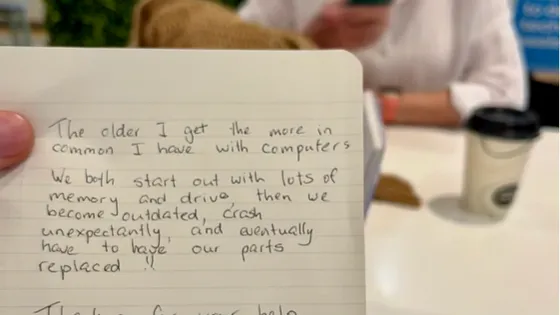 The older I get the more in
common I have with computers
We both start out with lots of
memory and drive, then we
become outdated, crash
unexpectantly, and eventually
have to have our parts
replaced !!